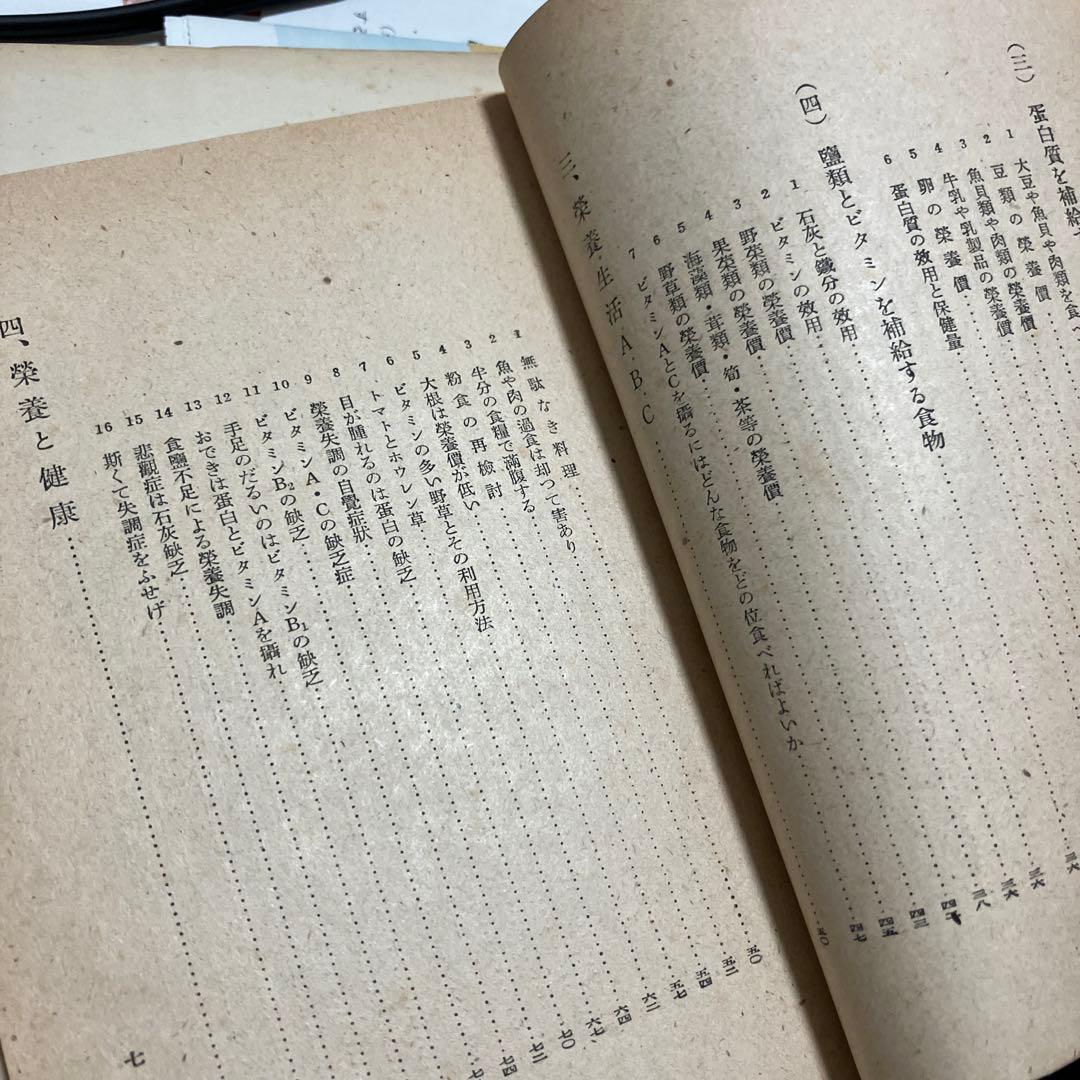 (三) 蛋白質を補給
1 大豆や魚貝や肉類を食べ
2 豆類の榮養價
3 魚貝類や肉類の榮養價
4 牛乳や乳製品の榮養價
5 卵の榮養價
6 蛋白質の效用と保健量
(四) 鹽類とビタミンを補給する食物
1 石灰と鐵分の效用
2 ビタミンの效用
3 野菜類の榮養價
4 果菜類の榮養價
5 海藻類・茸類・筍・茶等の榮養價
6 野草類の榮養價
7 ビタミンAとCを攝るにはどんな食物をどの位食べればよいか
三、榮養生活A・B・C
1 無駄なき料理
2 魚や肉の過食は却つて害あり
3 半分の食糧で滿腹する
4 粉食の再檢討
5 大根は榮養價が低い
6 ビタミンの多い野草とその利用方法
7 トマトとホウレン草
8 目が腫れるのは蛋白の缺乏
9 榮養失調の自覺症狀
10 ビタミンA・Cの缺乏症
11 ビタミンB₂の缺乏
12 手足のだるいのはビタミンB₁の缺乏
13 おできは蛋白とビタミンAを攝れ
14 食鹽不足による榮養失調
15 悲觀症は石灰缺乏
16 斯くて失調症をふせげ
四、榮養と健康